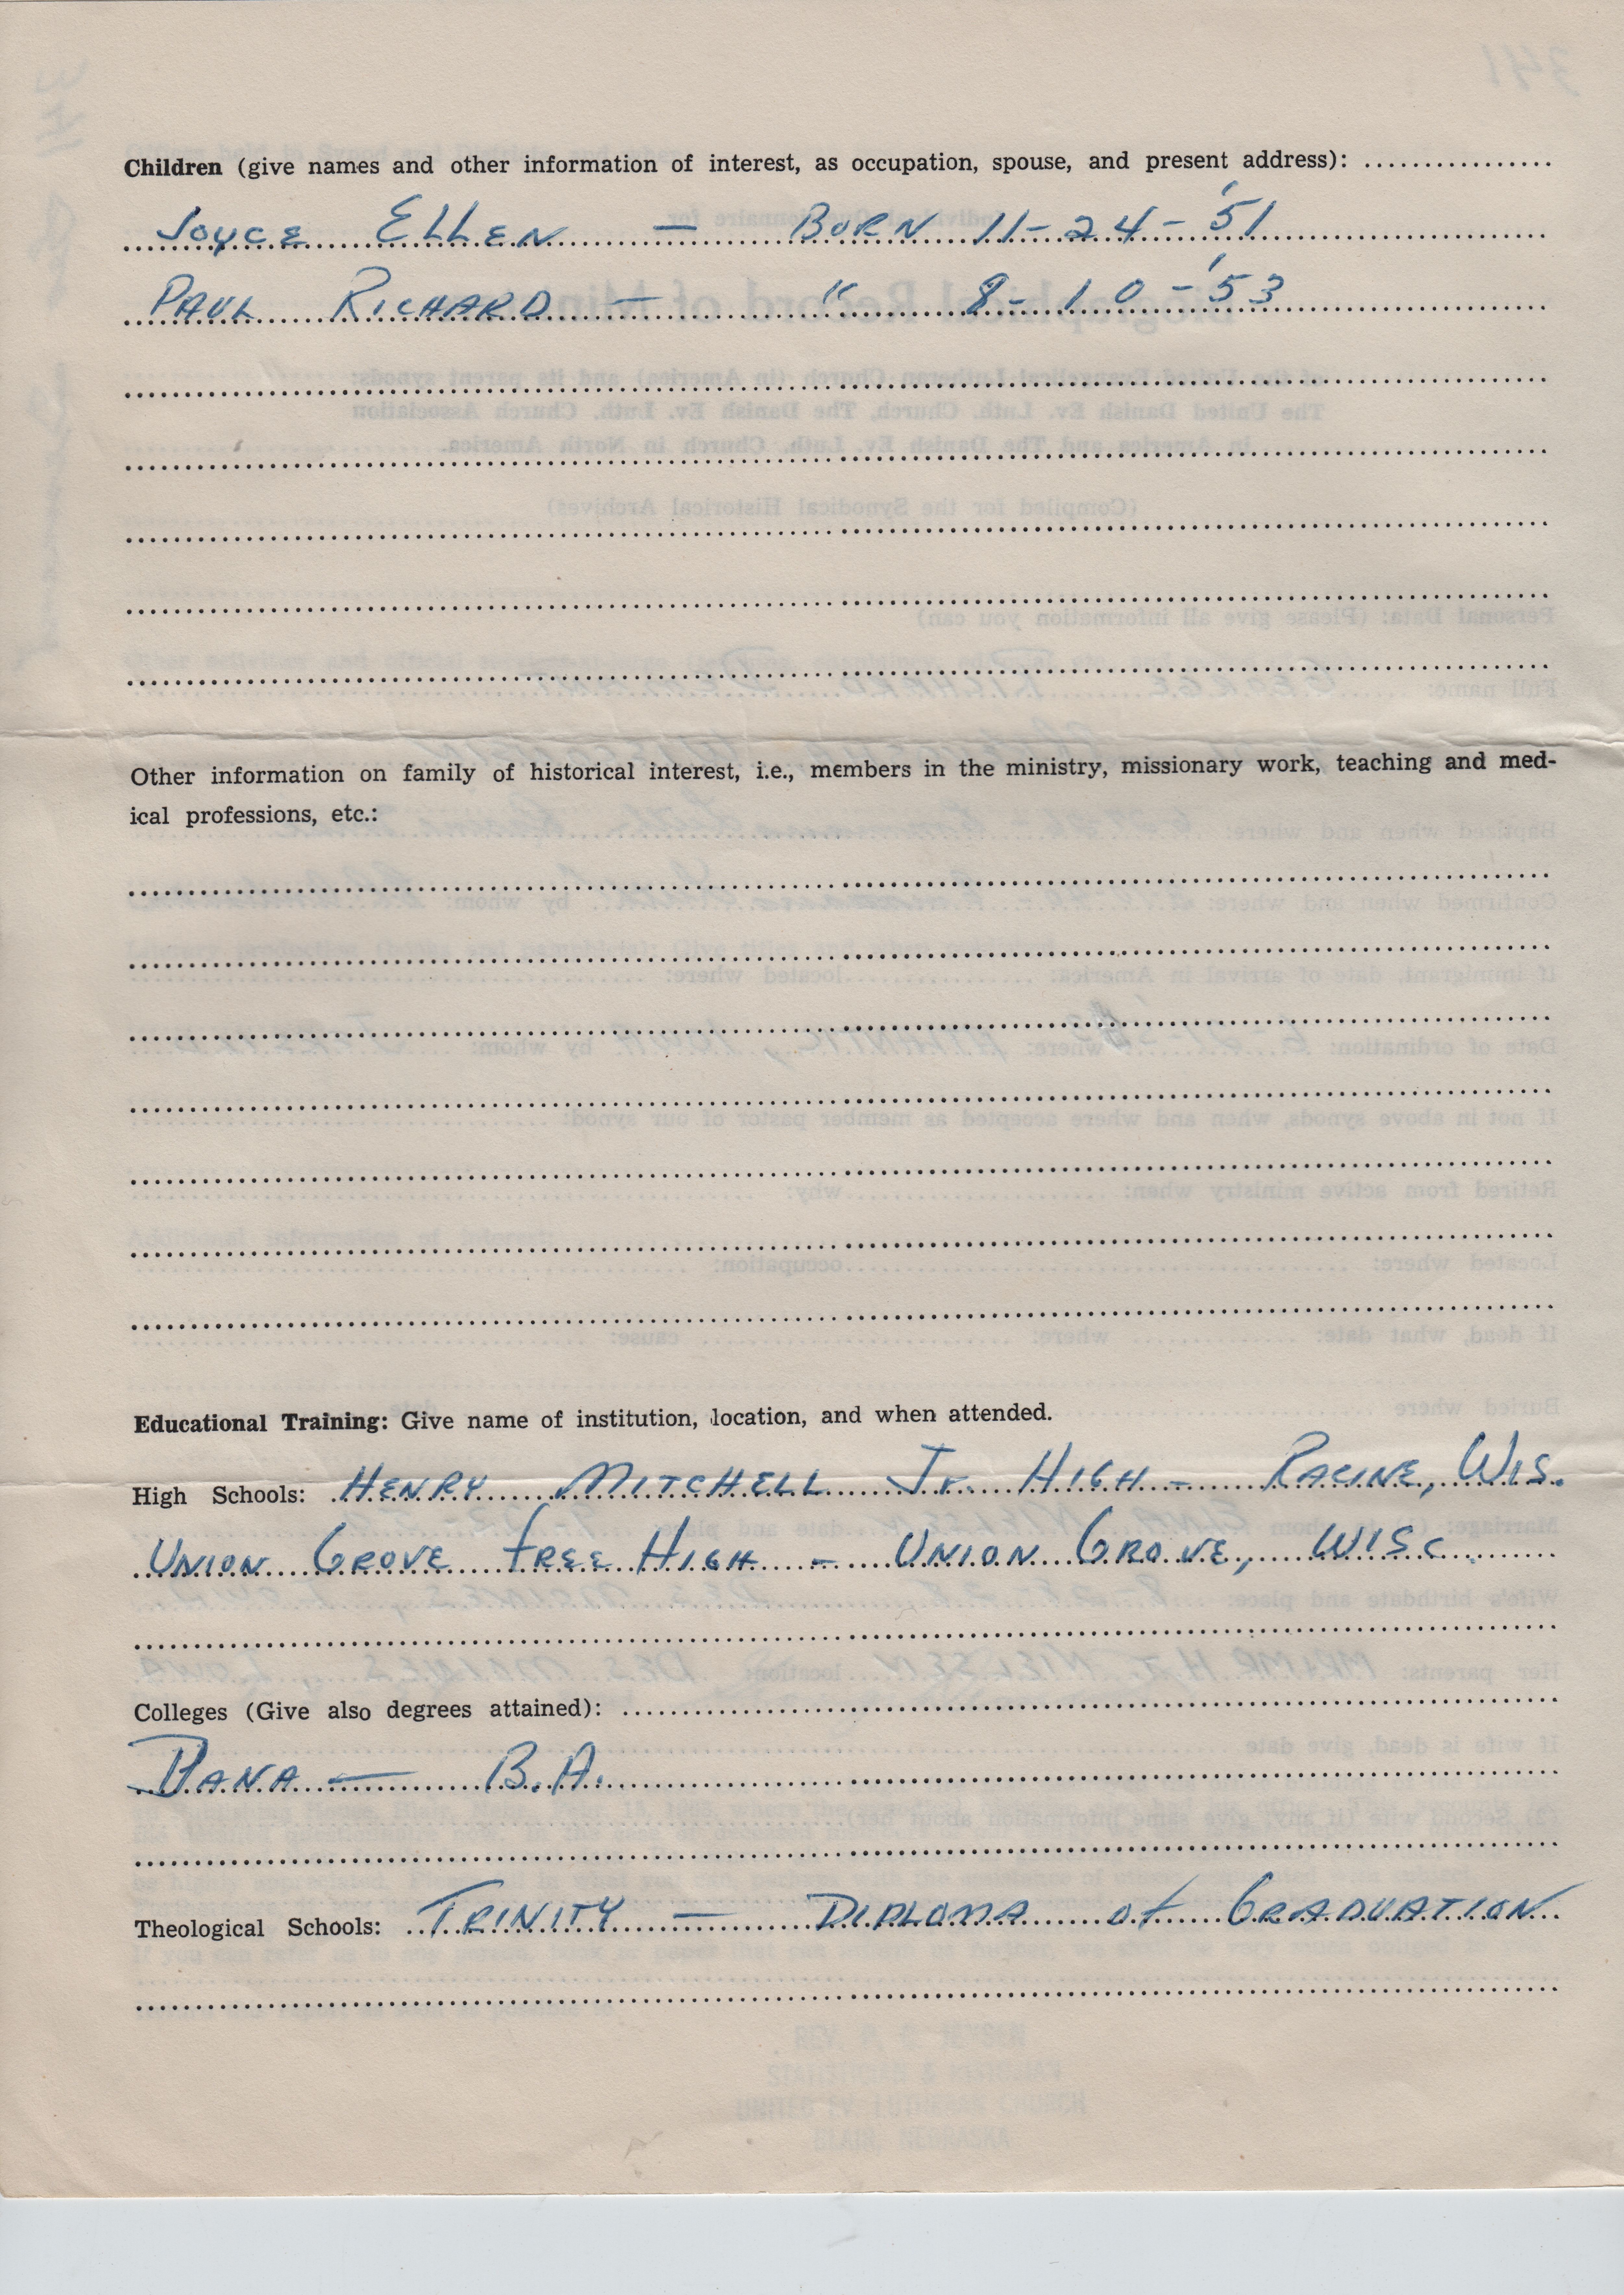 Children (give names and other information of interest, as occupation, spouse, and present address):
Joyce Ellen — Born 11-24-'51
Paul Richard — " 8-10-'53
Other information on family of historical interest, i.e., members in the ministry, missionary work, teaching and med-
ical professions, etc.:
Educational Training: Give name of institution, location, and when attended.
High Schools: Henry Mitchell Jr. High - Racine, Wis.
Union Grove Free High - Union Grove, Wisc.
Colleges (Give also degrees attained):
Dana — B.A.
Theological Schools: Trinity — Diploma of Graduation